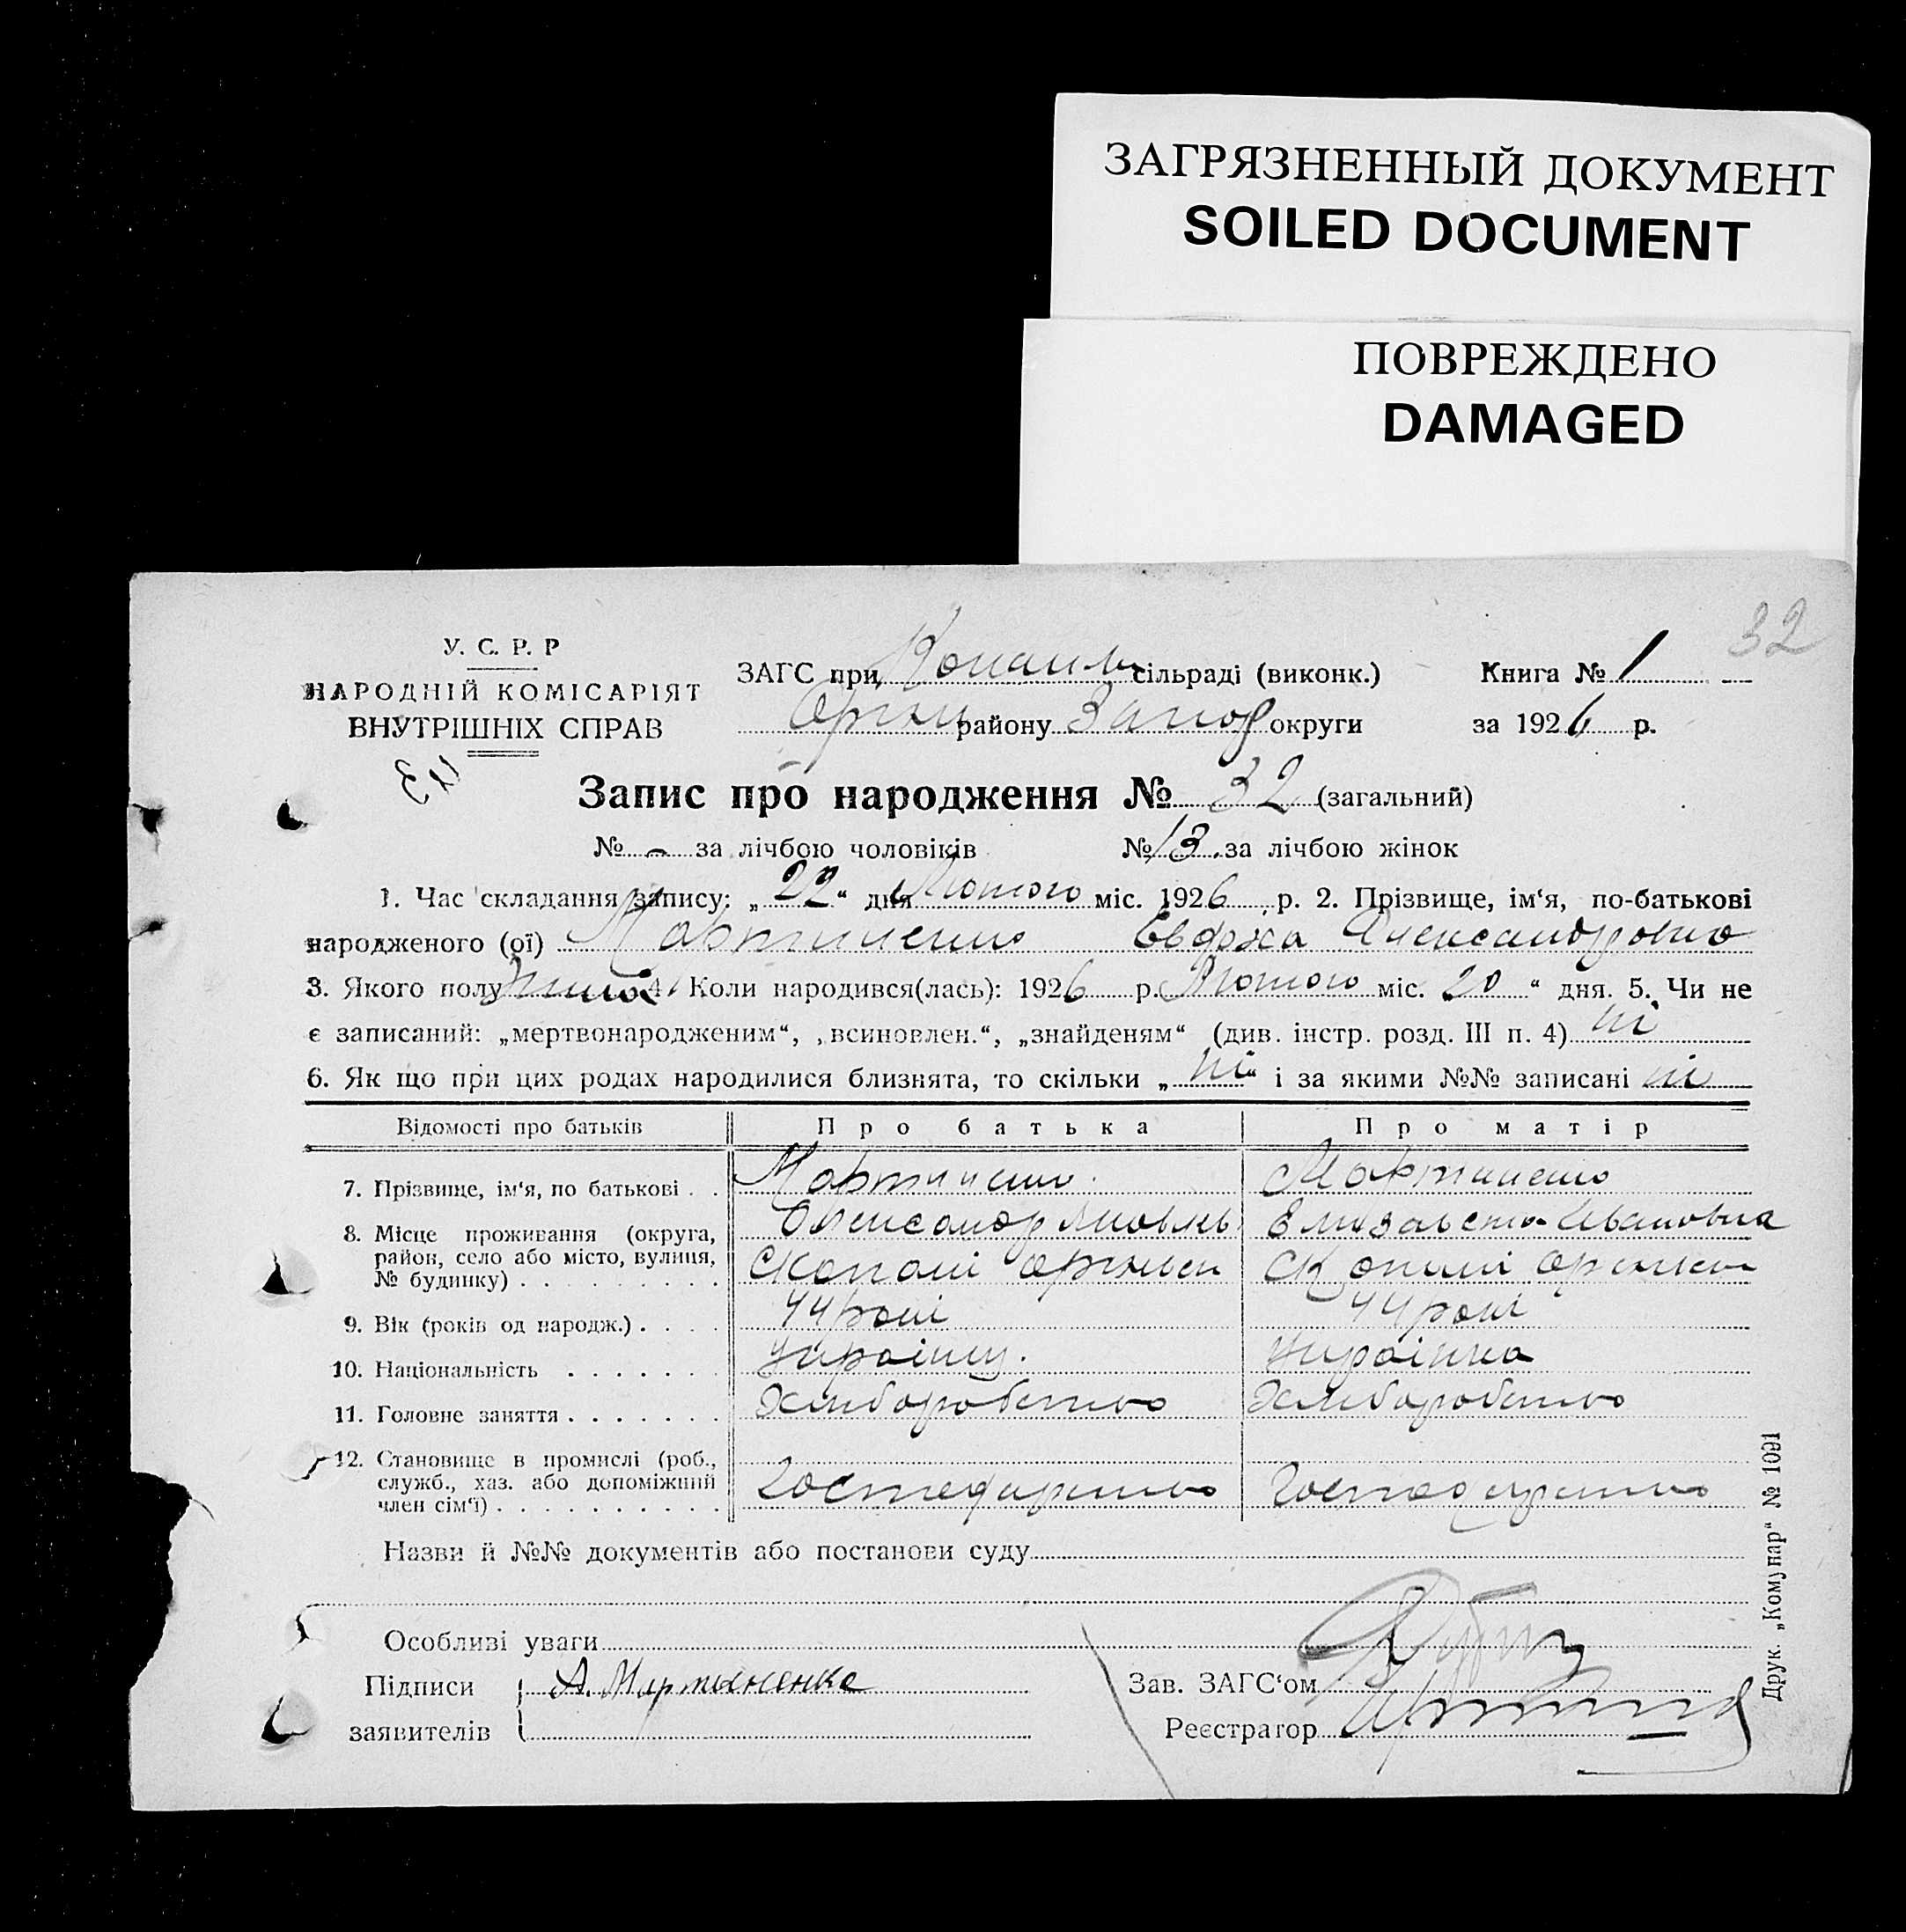 ЗАГРЯЗНЕННЫЙ ДОКУМЕНТ
SOILED DOCUMENT
ПОВРЕЖДЕНО
DAMAGED
32
У. С. Р. Р
НАРОДНІЙ КОМІСАРІЯТ
ВНУТРІШНІХ СПРАВ
ЗАГС при Копань сільраді (виконк.) Книга № 1
Оріхів району Запор округи за 1926 р.
Запис про народження № 32 (загальний)
№ - за лічбою чоловіків № 13. за лічбою жінок
1. Час складання запису: „22“ дня Лютого міс. 1926 р. 2. Прізвище, ім‘я, по-батькові
народженого (ої) Мартиненко Олександровна
3. Якого полу 4. Коли народився(лась): 1926 р. Лютого міс. 20“ дня. 5. Чи не
є записаний: „мертвонародженим“, „всиновлен.“, „знайденям“ (див. інстр. розд. III п. 4) ні
6. Як що при цих родах народилися близнята, то скільки „ні“ і за якими №№ записані ні
Відомості про батьків Про батька Про матір
7. Прізвище, ім‘я, по батькові . . Мартиненко Мартиненко
Олександр Яковлев Елизавета Ивановна
8. Місце проживання (округа, район, село або місто, вулиця, № будинку) . . . . . . . . . с Копані с Копані
9. Вік (років од народж.) . . . . 44 роки 44 роки
10. Національність . . . . . . . Українец. Украінка
11. Головне заняття . . . . . . . Хліборобство Хліборобство
12. Становище в промислі (роб., служб., хаз. або допоміжний член сім‘ї) . . . . . . . . . . Господарство Господарство
Назви й №№ документів або постанови суду
Особливі уваги
Підписи А. Мартыненко Зав. ЗАГС‘ом
заявителів Реєстратор
Друк. „Комунар“ № 1091